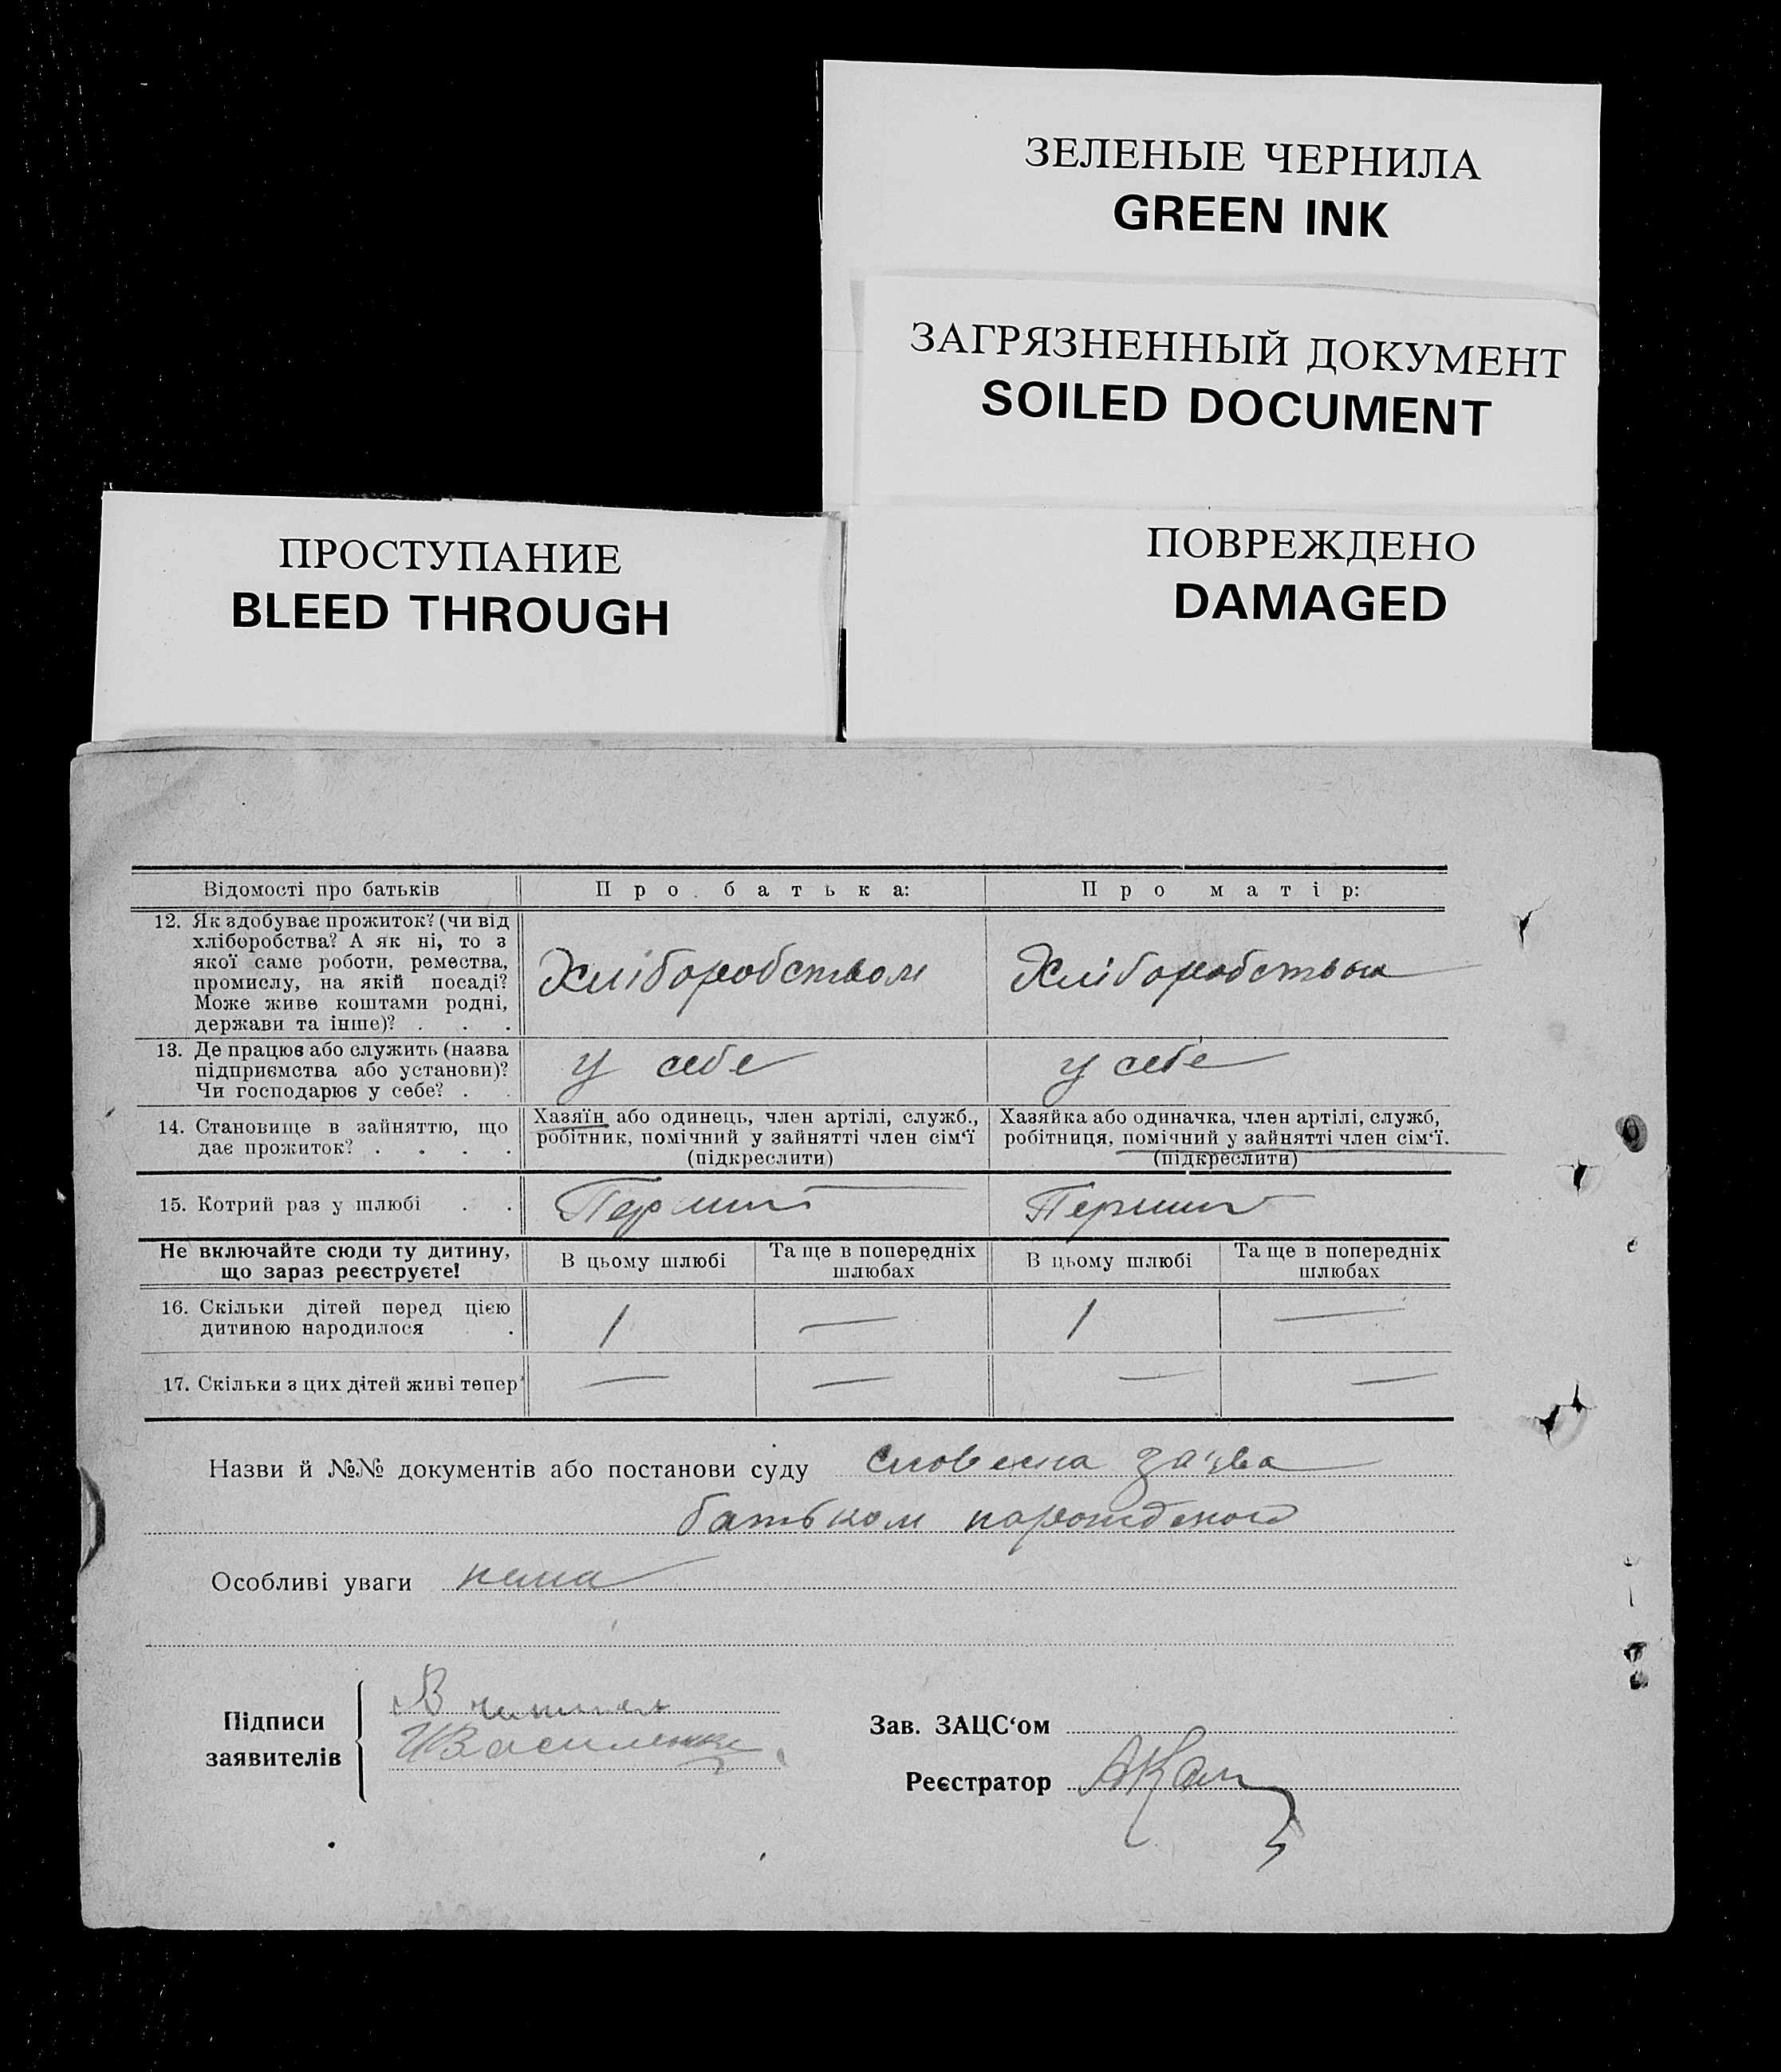 ЗЕЛЕНЫЕ ЧЕРНИЛА
GREEN INK
ЗАГРЯЗНЕННЫЙ ДОКУМЕНТ
SOILED DOCUMENT
ПРОСТУПАНИЕ
BLEED THROUGH
ПОВРЕЖДЕНО
DAMAGED
Відомості про батьків Про батька: Про матір:
12. Як здобуває прожиток? (чи від
хліборобства? А як ні, то з
якої саме роботи, ремества,
промислу, на якій посаді?
Може живе коштами родні,
держави та інше)? . . .
Хліборобством Хліборобством
13. Де працює або служить (назва
підприємства або установи)?
Чи господарює у себе? . .
у себе у себе
14. Становище в зайняттю, що
дає прожиток? . . . .
Хазяїн або одинець, член артілі, служб.,
робітник, помічний у зайнятті член сім'ї
(підкреслити)
Хазяйка або одиначка, член артілі, служб,
робітниця, помічний у зайнятті член сім'ї.
(підкреслити)
15. Котрий раз у шлюбі . . Перший Перший
Не включайте сюди ту дитину,
що зараз реєструєте!
В цьому шлюбі Та ще в попередніх
шлюбах
В цьому шлюбі Та ще в попередніх
шлюбах
16. Скільки дітей перед цією
дитиною народилося .
1 — 1 —
17. Скільки з цих дітей живі тепер — — — —
Назви й №№ документів або постанови суду словесна заява
батьком
Особливі уваги нема
Підписи
заявителів
И Василенко
Зав. ЗАЦС'ом
Реєстратор